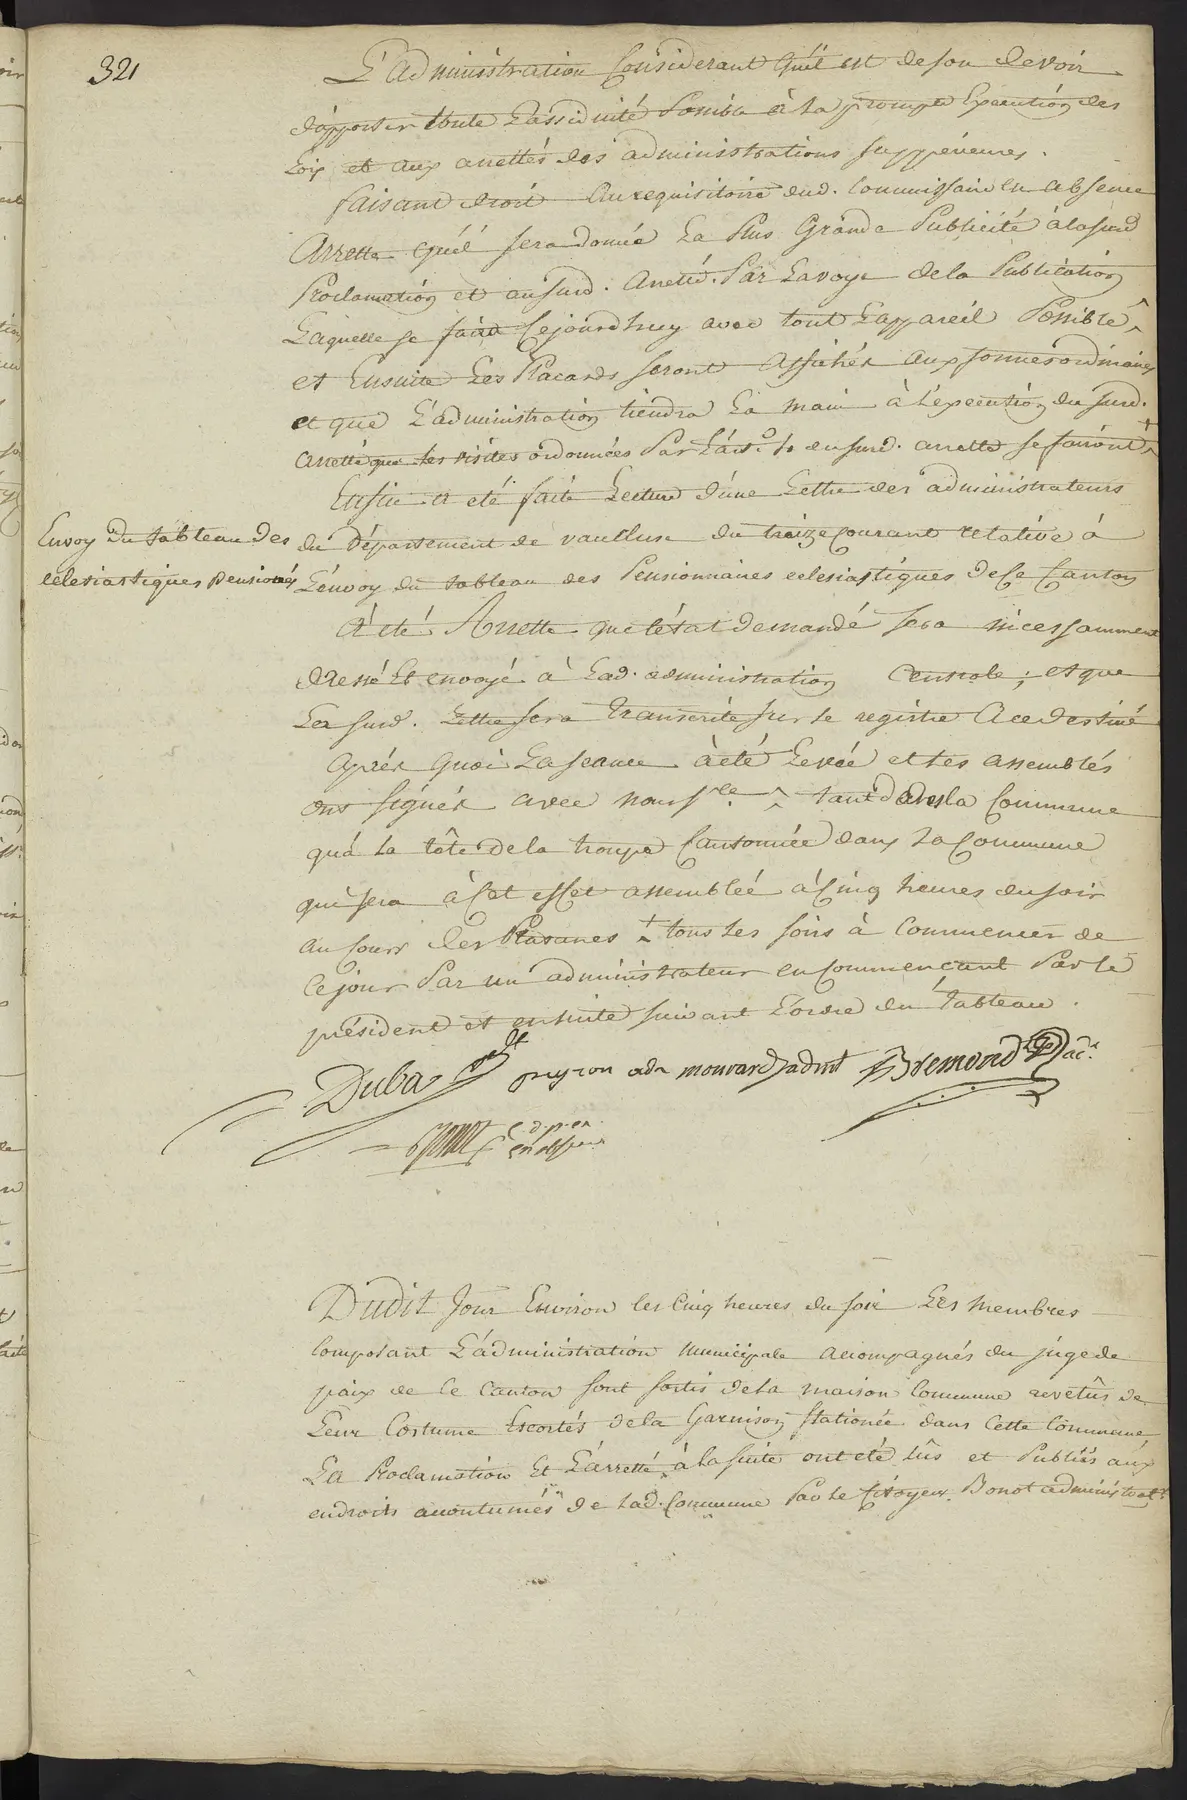 321
L'administration Considerant qu'il est de son devoir
d'apporter toute l'assiduité Possible à la prompte Execution des
Loix et aux arrettés des administrations suppérieures.
faisant droit au requisitoire dud. Commissaire en absence
Arrette qu'il sera donnée La Plus Grande Publicité à lasusd
Proclamation et ausurd. Arretté. Par Lavoye dela Publication
Laquelle se faira Cejourdhuy avec tout L'appareil Possible ^
et Ensuite Les Placards seront affichés aux formes ordinaires
et que L'administration tiendra La main à L'execution du surd.
arretté que les visites ordonnées Par L'art. 10 dusurd. arretté se fairont +
Ensuite a eté faite Lecture d'une Lettre des administrateurs
Envoy du tableau des
eclesiastiques pensionés
du Département de vaucluse du treize courant relative à
L'envoy du tableau des Pensionnaires eclesiastiques dece Canton
A été Arretté que l'état demandé sera nicessamment
dressé Et envoyé à Lad. administration Centrale; et que
La surd. Lettre sera transcrite sur le registre Acedestiné
après quoi La seance à été Levée et les assemblés
ont signés avec nous sre. ^ tant dans la Commune
quà la tôte de la troupe Cantonnée dans la Commune
qui sera à cet effet assembleé à Cinq heures du soir
au Cours des Platanes + tous les soirs à Commencer de
Cejour Par un administrateur en Commençant Par le
président et ensuite suivant L'ordre du Tableau.
Duba pdt peyron adm mouvard admt Bremond ac.
c.d.p.ex.
en absence
Dudit Jour Environ les Cinq heures du soir Les Membres
Composant L'administration Municipale accompagnés du juge de
paix de ce Canton sont sortis dela maison Commune revetûs de
Leur Costume Escortés dela Garnison Stationée dans Cette Commune
La Proclamation Et L'arretté à la suite ont été lûs et Publiés aux
endroits accoutumés de lad. Commune Par le Citoyen Bonot administratr